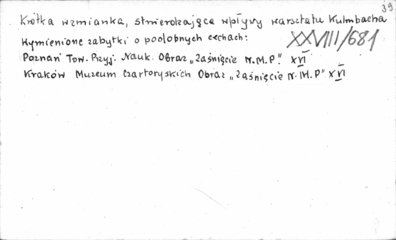 39
Krótka wzmianka, stwierdzająca wpływy warsztatu Kulmbacha
Wymienione zabytki o podobnych cechach:
XXVIII/681
Poznań Tow. Przyj. Nauk. Obraz „Zaśnięcie N.M.P." XVI
Kraków Muzeum Czartoryskich Obraz „Zaśnięcie N.M.P" XVI